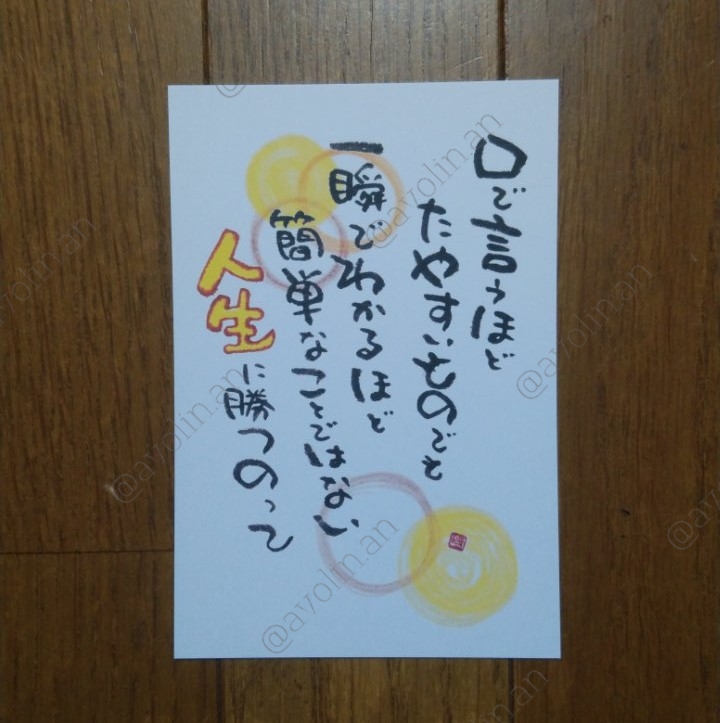 口で言うほど
たやすいものでも
一瞬でわかるほど
簡単なことではない
人生に勝つのって
@avolin.an
@avolin.an
@avolin.an
@avolin.an
@avolin.an
@avolin.an